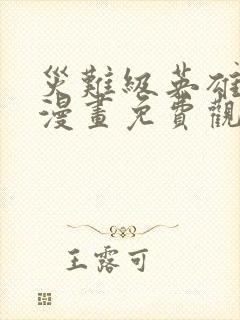 災難級英雄
漫畫免費觀
王露可